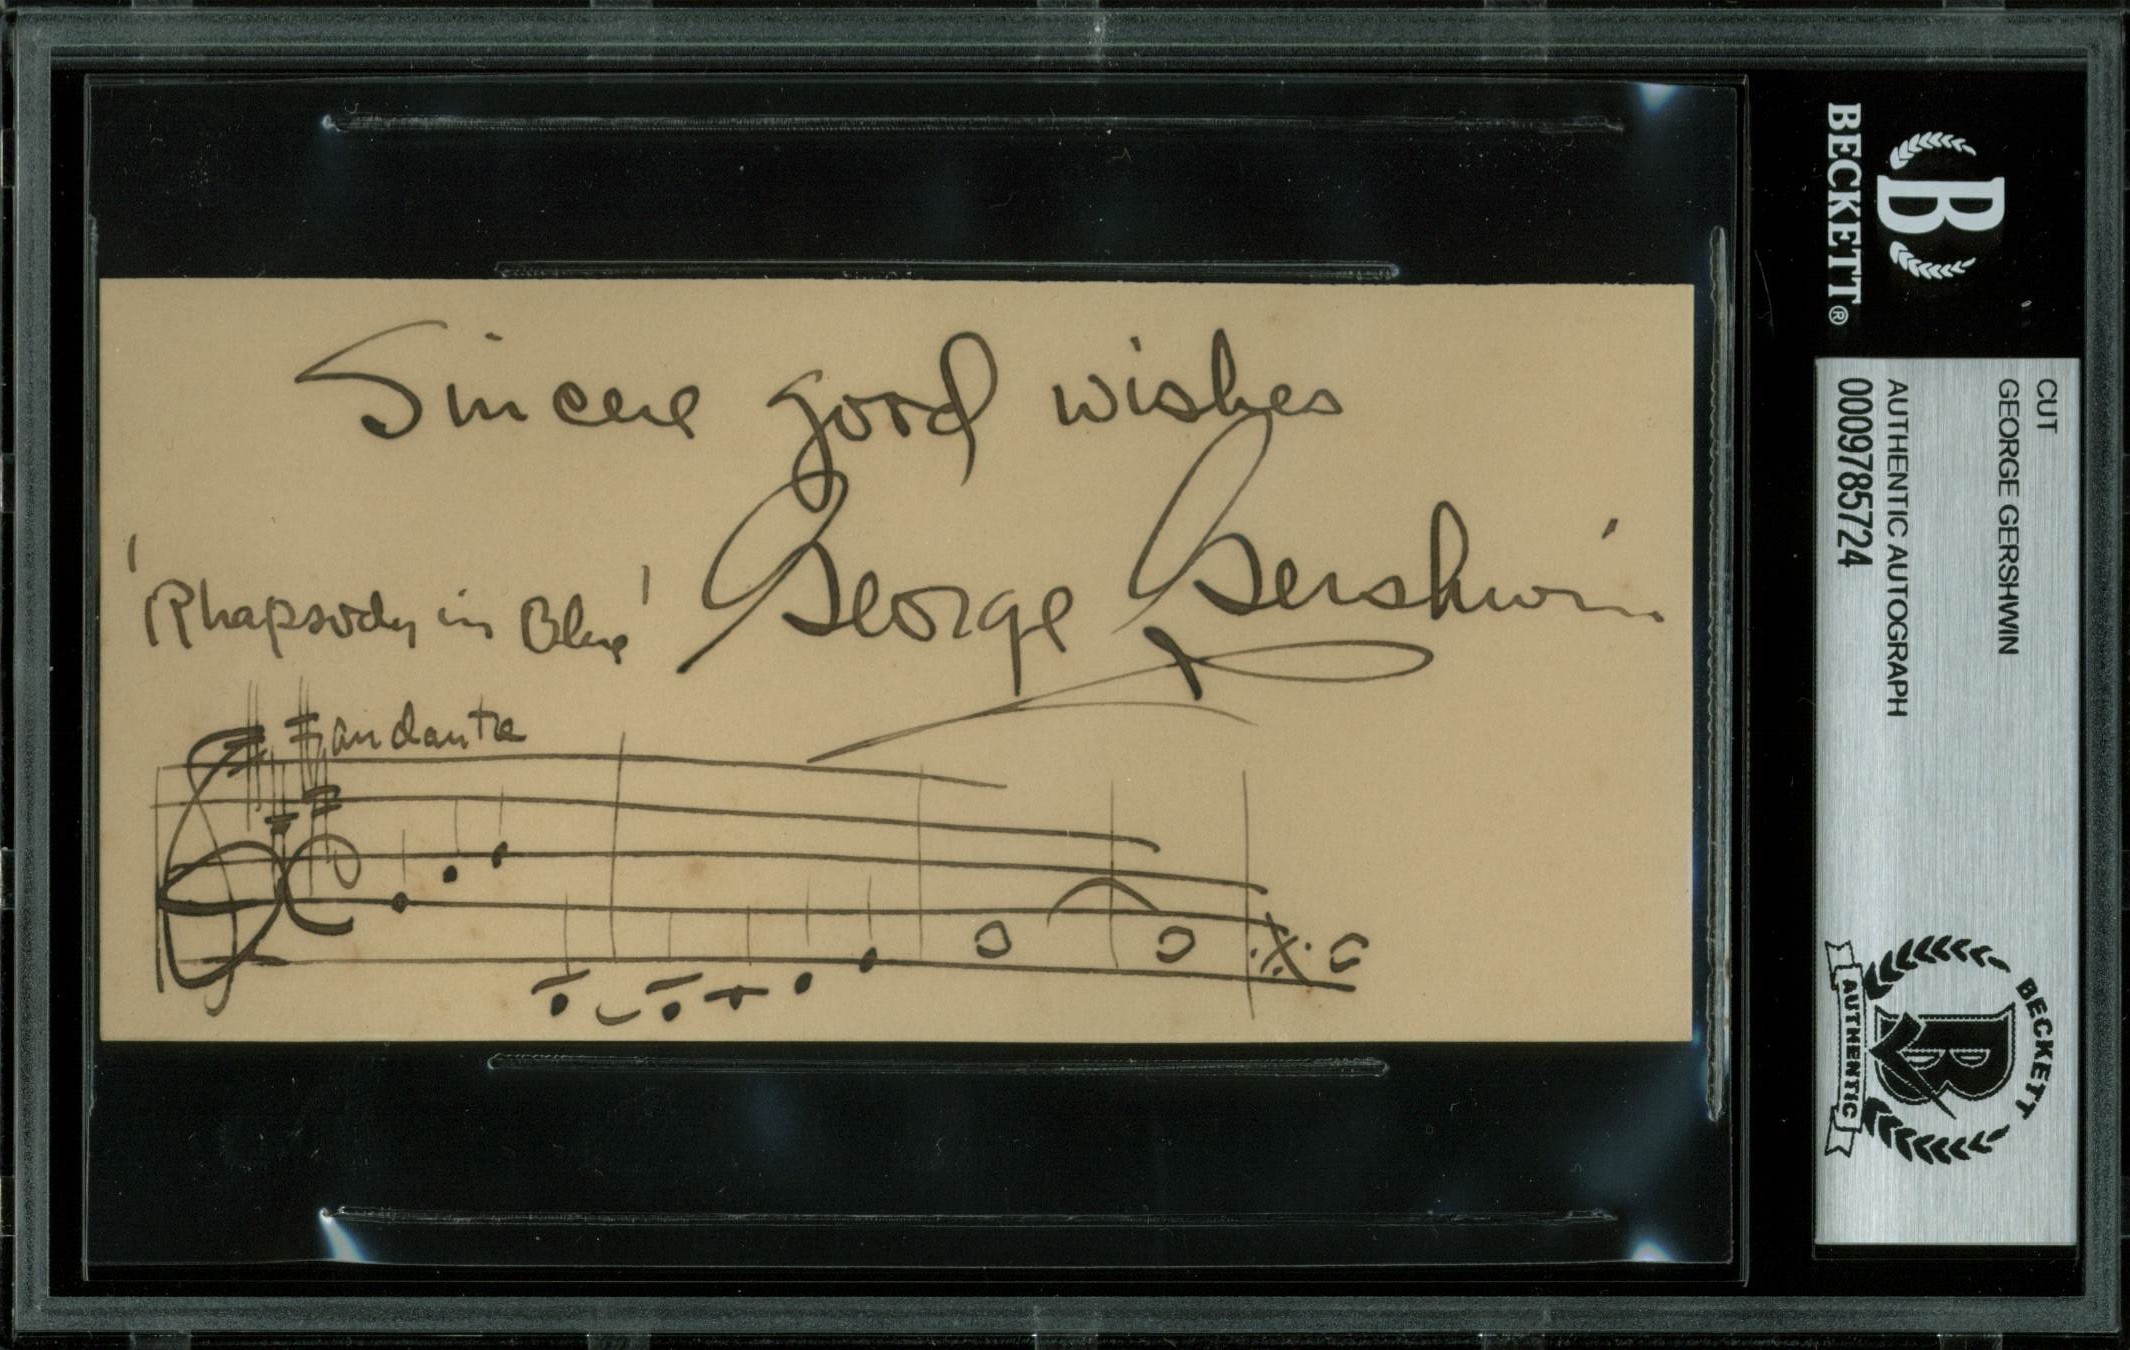 Sincere good wishes
George Gershwin
'Rhapsody in Blue'
andante
BECKETT®
CUT
GEORGE GERSHWIN
AUTHENTIC AUTOGRAPH
00009785724
BECKETT
AUTHENTIC